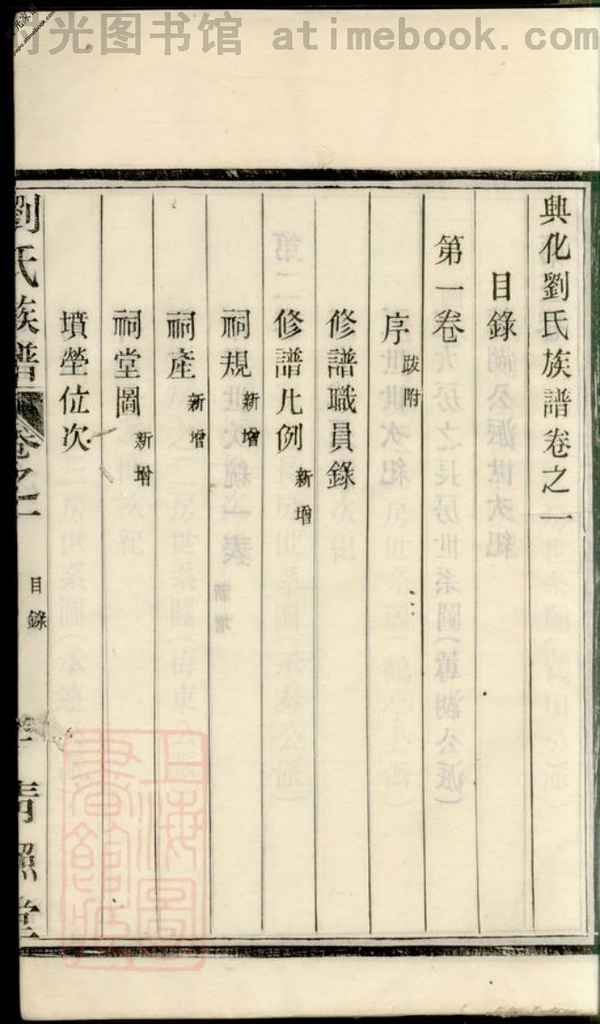 时光图书馆 atimebook.com
興化劉氏族譜卷之一
目錄
第一卷
序 跋附
修譜職員錄
修譜凡例 新增
祠規 新增
祠產 新增
祠堂圖 新增
墳塋位次
劉氏族譜 卷之一 目錄 一 青照堂
上海圖書館藏